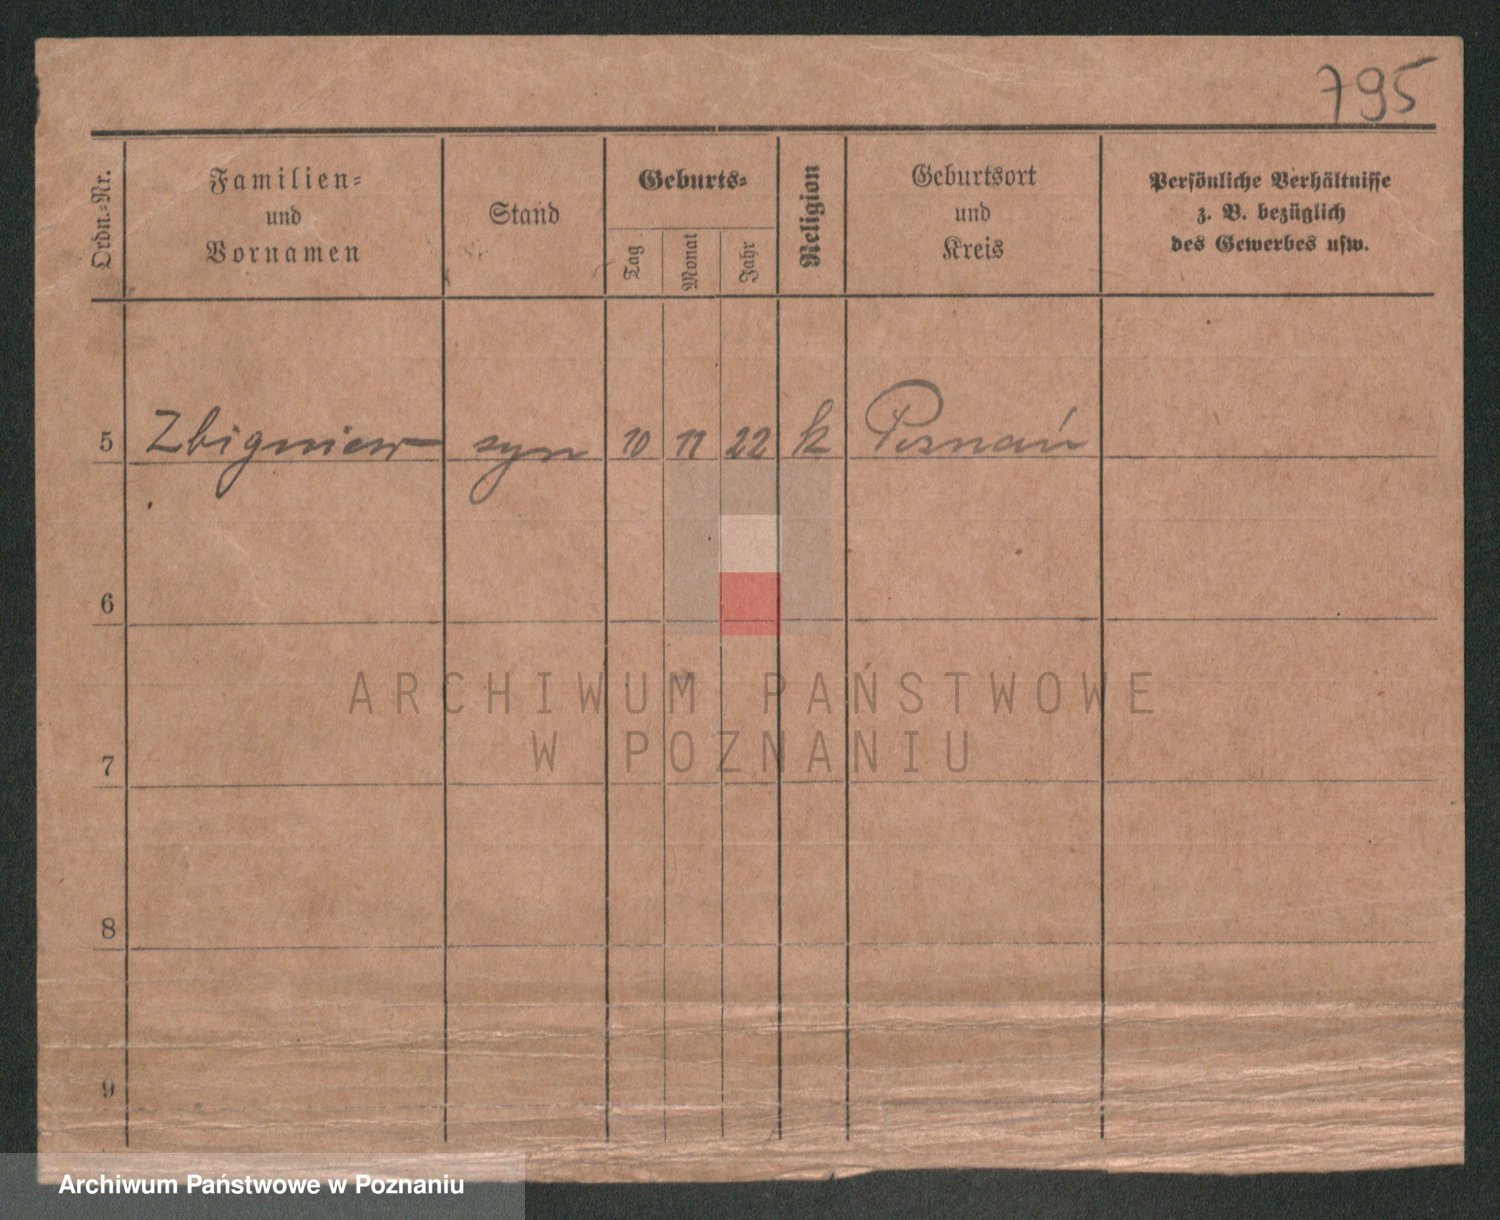 795
Ordn.-Nr.
Familien-
und
Vornamen
Stand
Geburts-
Tag
Monat
Jahr
Religion
Geburtsort
und
Kreis
Persönliche Verhältnisse
z. B. bezüglich
des Gewerbes usw.
5 Zbigniew syn 10 11 22 k Poznań
6
7
8
9
ARCHIWUM PAŃSTWOWE
W POZNANIU
Archiwum Państwowe w Poznaniu